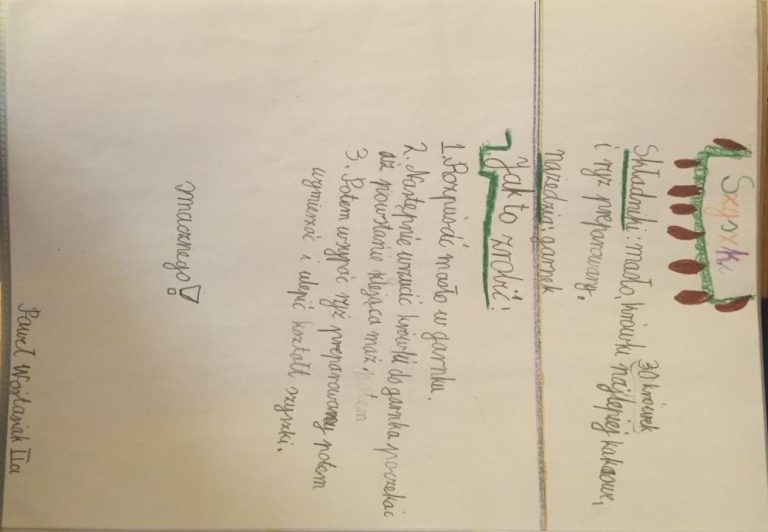 Szyszki
30 krówek
Składniki: masło, krówki najlepiej kakaowe,
i ryż preparowany.
narzędzia: garnek
Jak to zrobić:
1. Rozpuścić masło w garnku.
2. Następnie wrzucić krówki do garnka poczekać
aż powstanie klejąca maź.
3. Potem wsypać ryż preparowany potem
wymieszać i ulepić kształt szyszki.
smacznego!
Paweł IIa